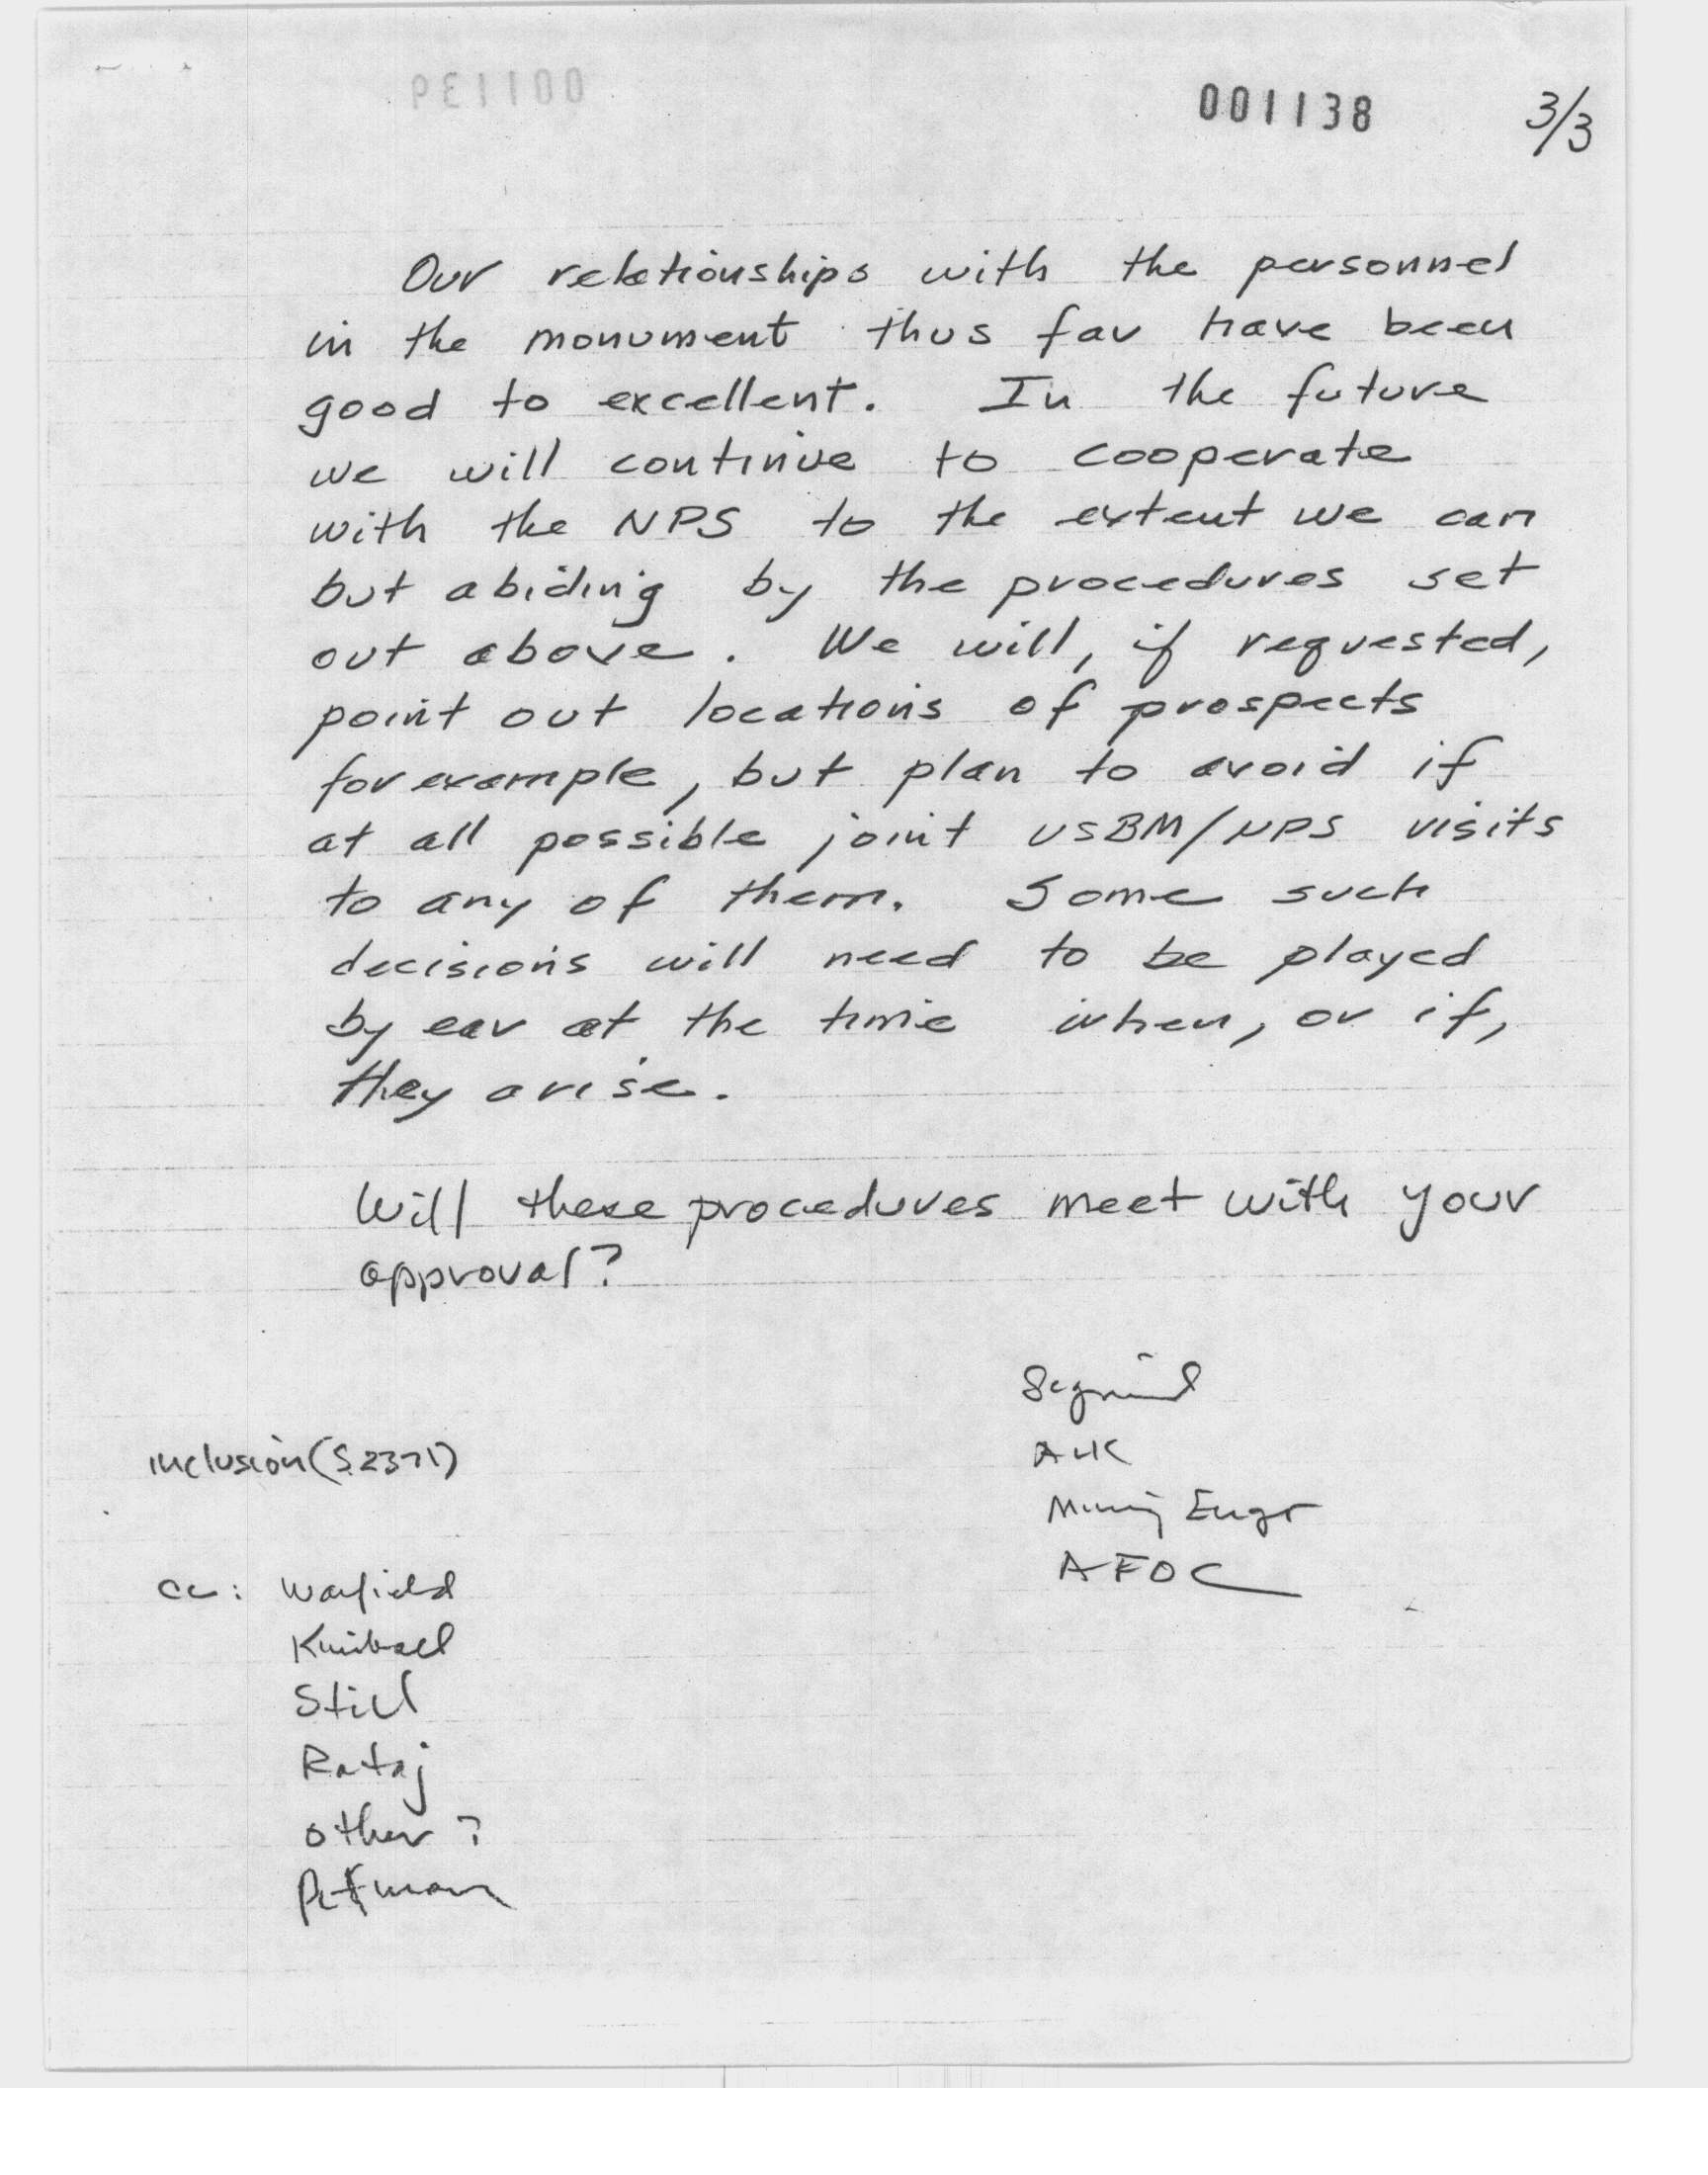 001138 3/3
Our relationships with the personnel
in the monument thus far have been
good to excellent. In the future
we will continue to cooperate
with the NPS to the extent we can
but abiding by the procedures set
out above. We will, if requested,
point out locations of prospects
for example, but plan to avoid if
at all possible joint USBM/NPS visits
to any of them. Some such
decisions will need to be played
by ear at the time when, or if,
they arise.
Will these procedures meet with your
approval?
AUK
inclusion (S.2371)
Mining Engr
AFOC
cc: Warfield
Kimball
Still
Rataj
other?
Pittman